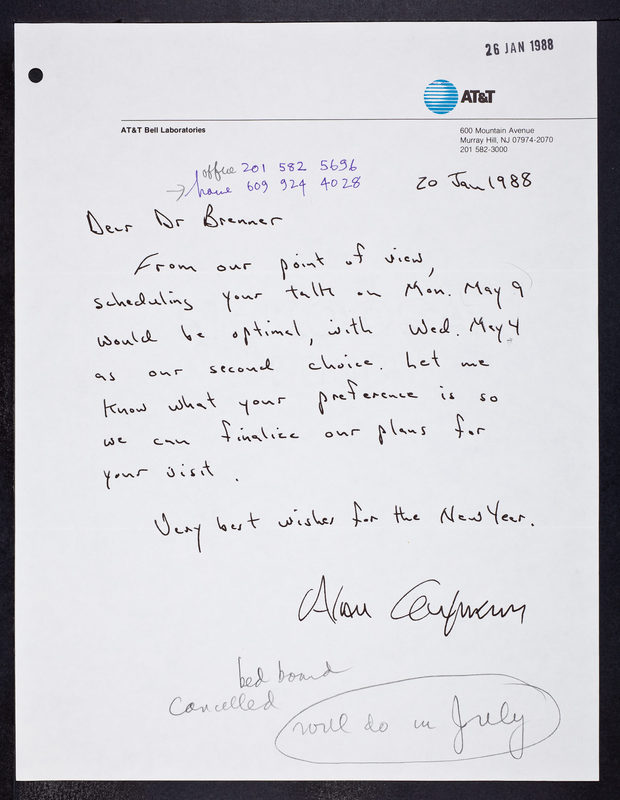 26 JAN 1988
AT&T
AT&T Bell Laboratories
600 Mountain Avenue
Murray Hill, NJ 07974-2070
201 582-3000
office 201 582 5696
→ home 609 924 4028
20 Jan 1988
Dear Dr Brenner
From our point of view,
scheduling your talk on Mon. May 9
would be optimal, with Wed. May 4
as our second choice. Let me
know what your preference is so
we can finalize our plans for
your visit.
Very best wishes for the New Year.
Alan
bed board
Cancelled
will do in July